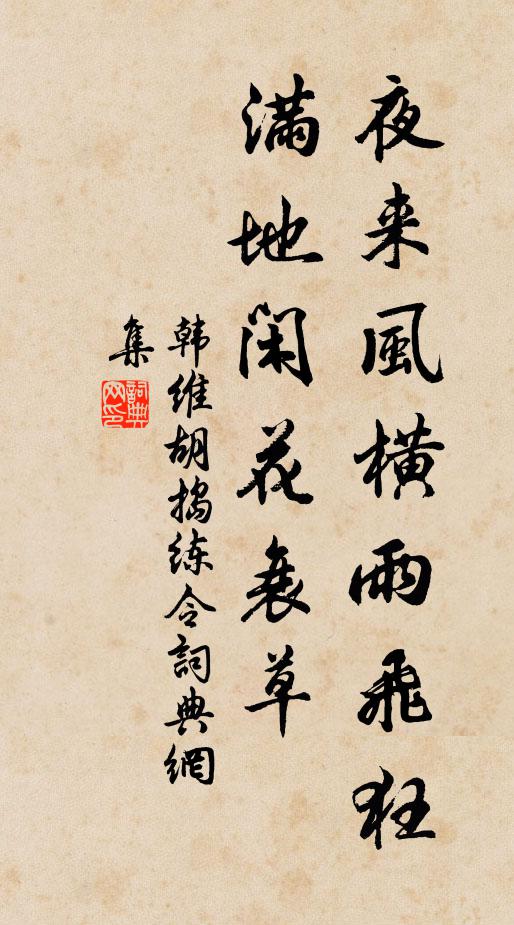 夜来風横雨飛狂
满地闲花衰草
韩维胡捣练令詞典網
集
詞典网印